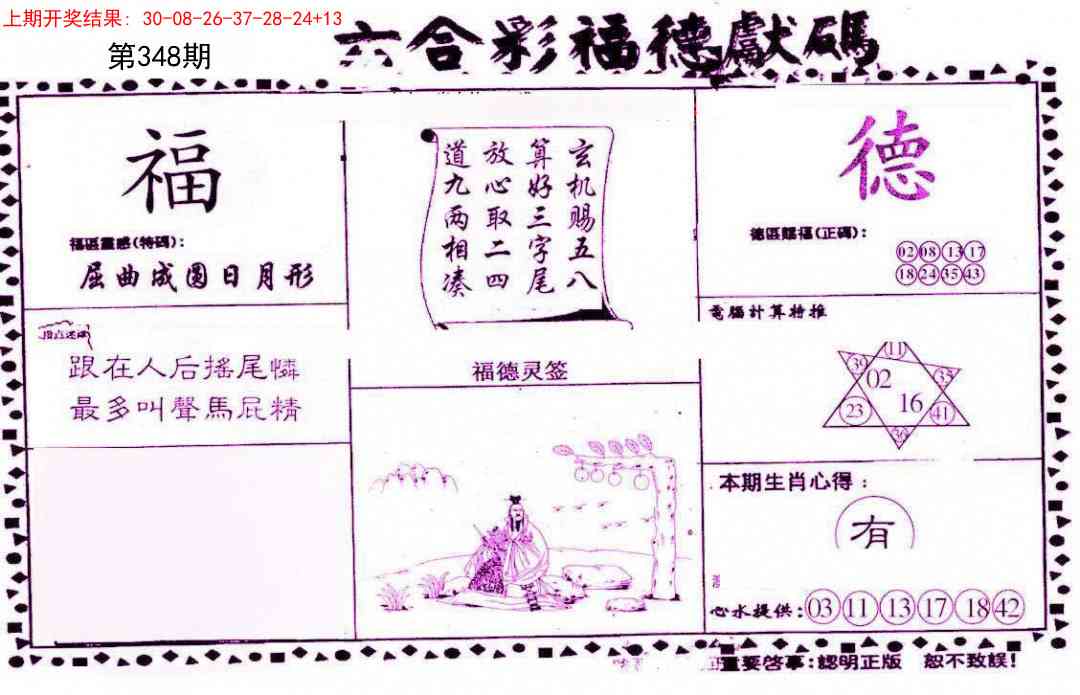 上期开奖结果: 30-08-26-37-28-24+13
第348期
六合彩福德獻碼
福
福區靈感(特碼):
屈曲成圆日月形
跟在人后摇尾憐
最多叫聲馬屁精
玄机赐五八
算好三字尾
放心取二四
道九两相凑
福德灵签
德
德區賜福(正碼):
02 08 13 17
18 24 35 43
電腦計算特推
11
39 02 35
23 16 41
36
本期生肖心得:
有
心水提供: 03 11 13 17 18 42
重要啓事:認明正版 恕不致誤!